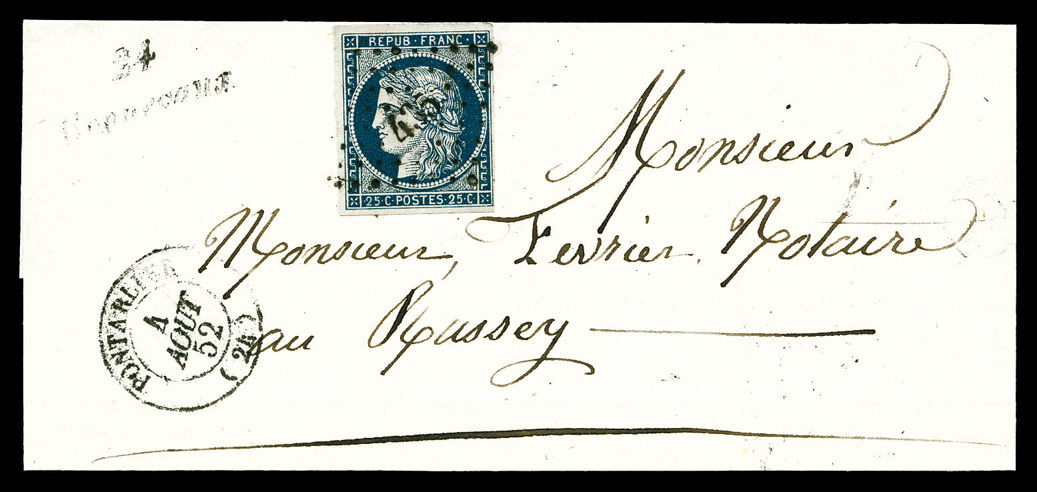 24
REPUB · FRANC ·
25 · C · POSTES · 25 · C ·
Monsieur
Monsieur, Ferrier Notaire
au Russey
PONTARLIER
A
AOUT
52
(24)